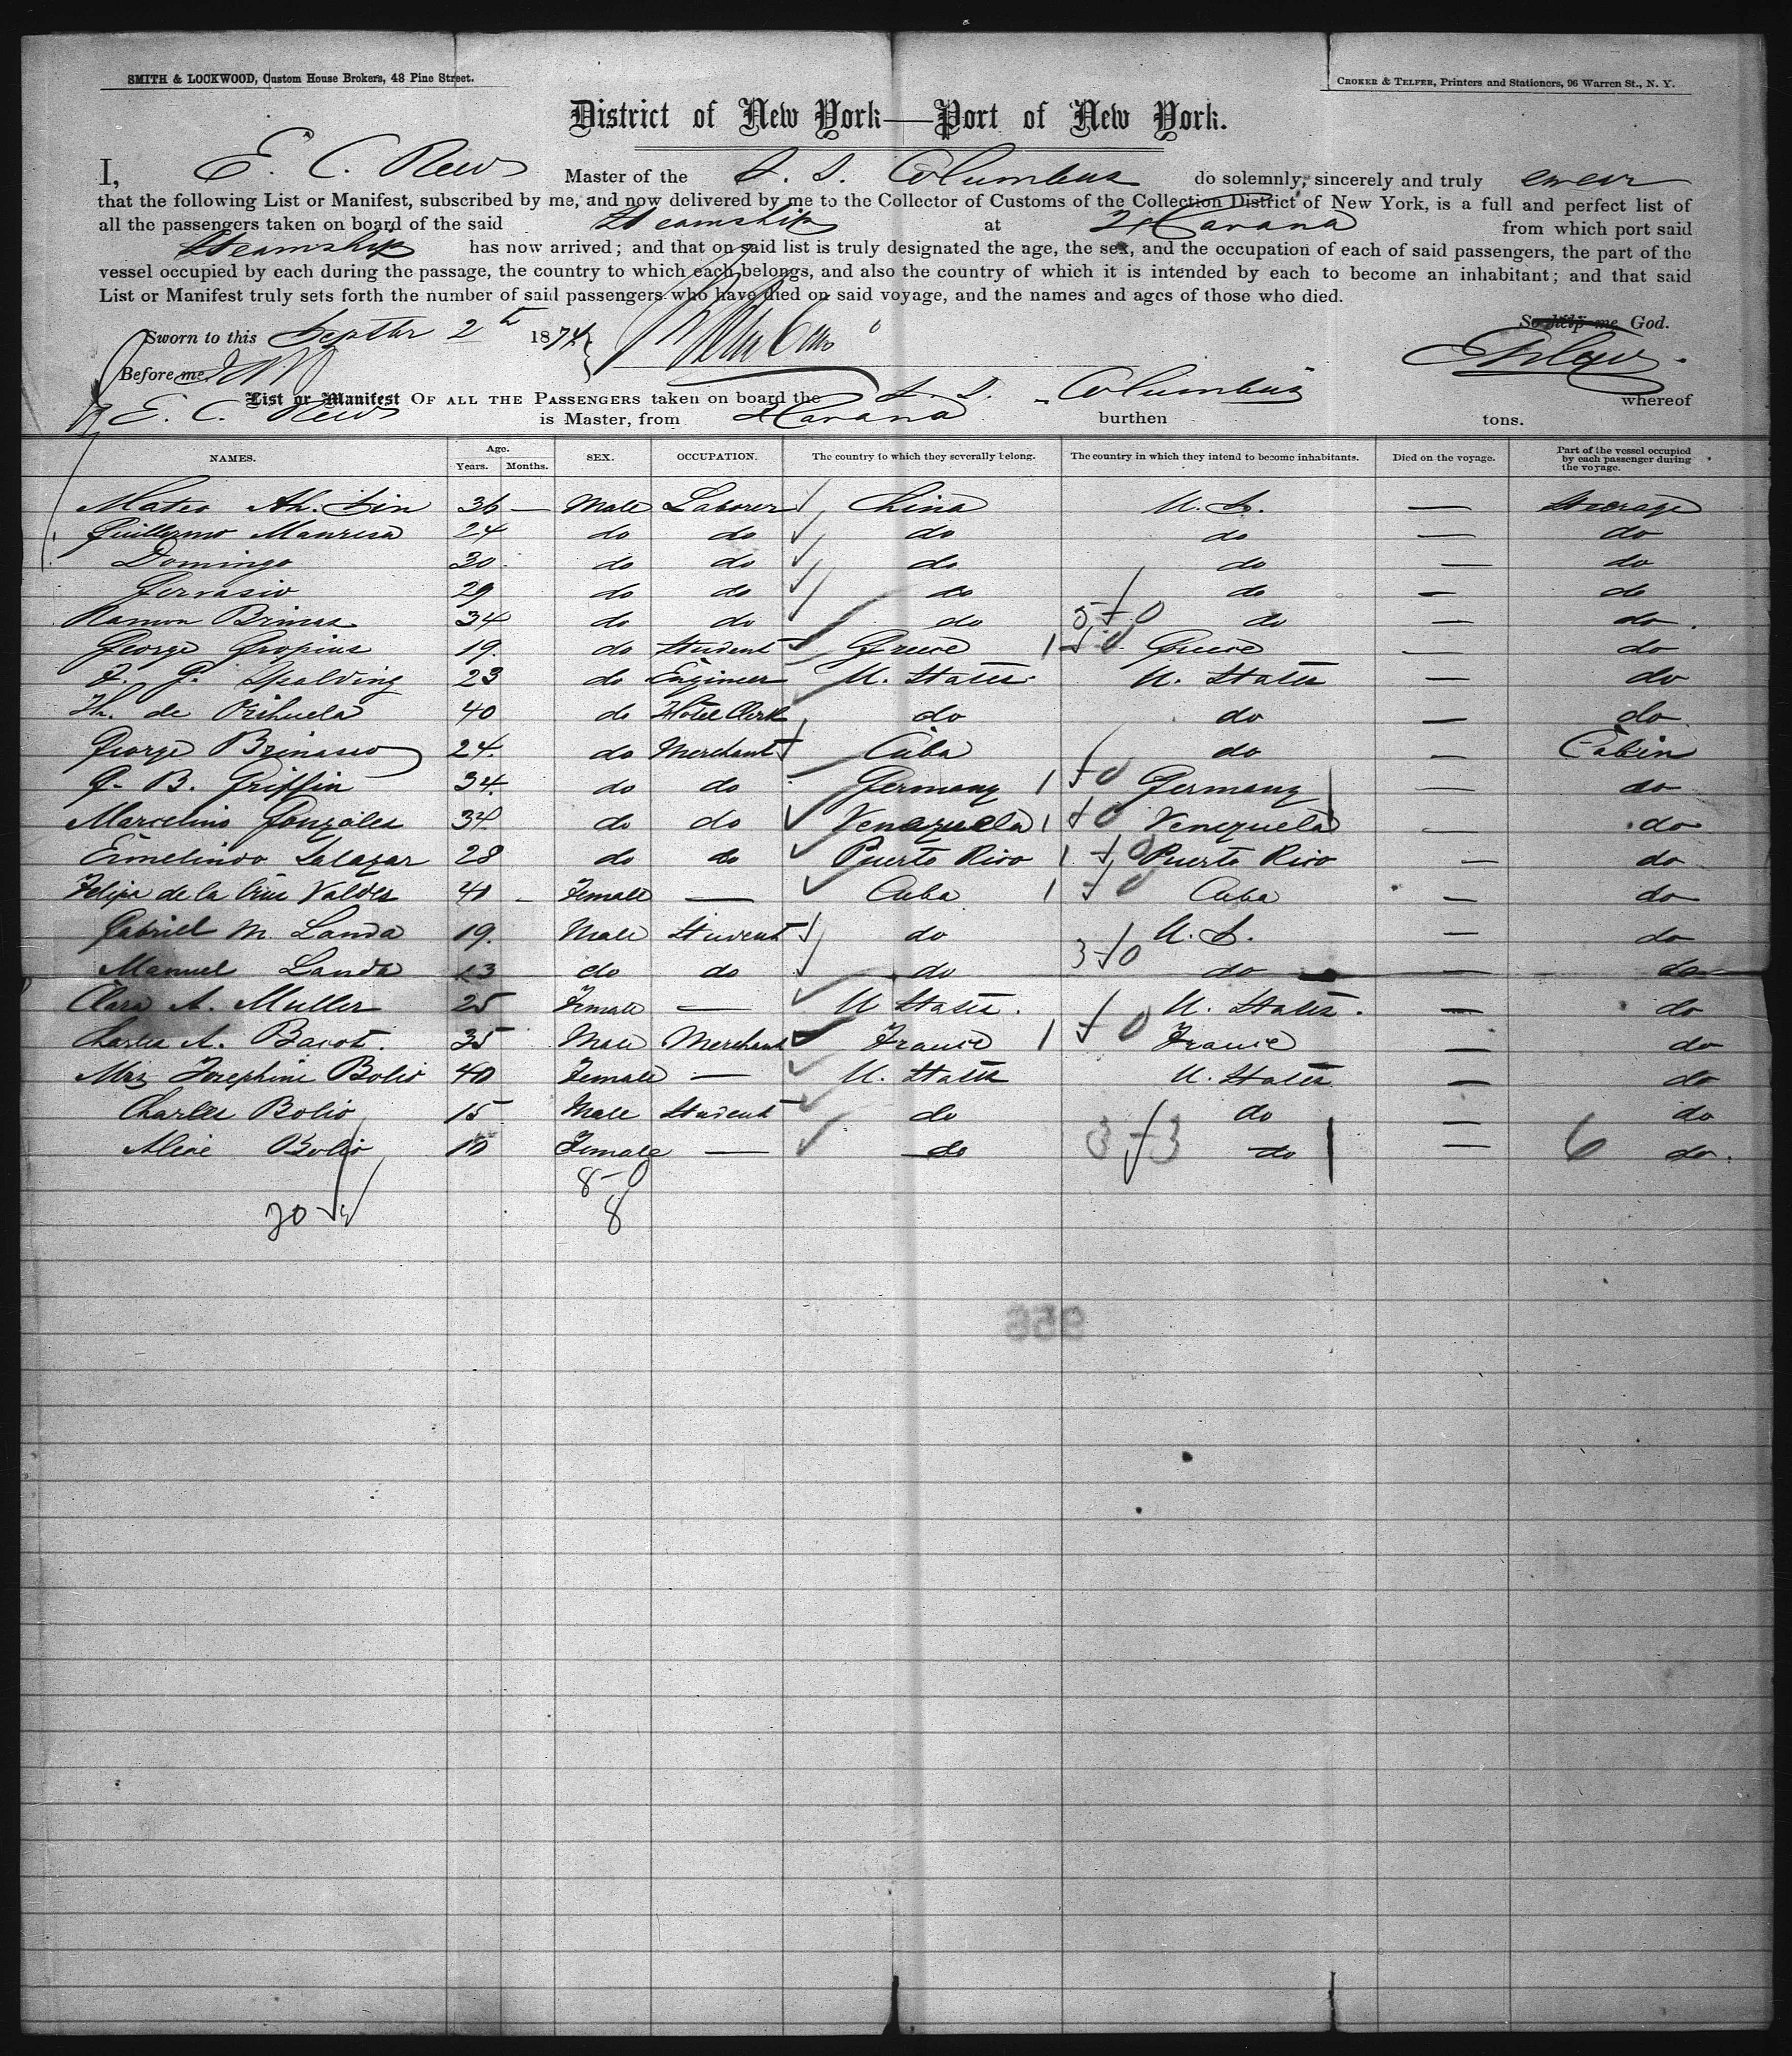 SMITH & LOCKWOOD, Custom House Brokers, 48 Pine Street.
CROKER & TELFER, Printers and Stationers, 96 Warren St., N. Y.
District of New York—Port of New York.
I, E. C. Rew Master of the S. S. Columbus do solemnly, sincerely and truly swear
that the following List or Manifest, subscribed by me, and now delivered by me to the Collector of Customs of the Collection District of New York, is a full and perfect list of
all the passengers taken on board of the said Steamship at Havana from which port said
Steamship has now arrived; and that on said list is truly designated the age, the sex, and the occupation of each of said passengers, the part of the
vessel occupied by each during the passage, the country to which each belongs, and also the country of which it is intended by each to become an inhabitant; and that said
List or Manifest truly sets forth the number of said passengers who have died on said voyage, and the names and ages of those who died.
So help me God.
Sworn to this Septbr 2th 1874
Before me
List or Manifest OF ALL THE PASSENGERS taken on board the S. S. Columbus whereof
E. C. Rew is Master, from Havana burthen tons.
NAMES. Age. Years. Months. SEX. OCCUPATION. The country to which they severally belong. The country in which they intend to become inhabitants. Died on the voyage. Part of the vessel occupied by each passenger during the voyage.
Mateo Ah. Sin 36 — Male Laborer China U. S. — Steerage
Guillermo Manresa 24 do do do do — do
Domingo 30 do do do do — do
Gervasio 29 do do do do — do
Ramon Brinas 34 do do do 5-0 do — do
George Gropius 19. do Student Greece 1-0 Greece — do
F. G. Spalding 23 do Engineer U. States U. States — do
Th. de Orihuela 40 do Hotel Clerk do do — do
George Brinasio 24. do Merchant Cuba do — Cabin
G. B. Griffin 34. do do Germany 1 0 Germany — do
Marcelino Gonzales 34. do do Venezuela 1 0 Venezuela — do
Ermelindo Salazar 28 do do Puerto Rico 1 0 Puerto Rico — do
Felipa de la Cruz Valdes 40 — Female — Cuba 1 0 Cuba — do
Gabriel M. Landa 19. Male Student do U. S. — do
Manuel Landa 13 do do do 3-0 do — do
Clara A. Muller 25 Female — U States. U. States. — do
Charles A. Bacot. 35 Male Merchant France 1 0 France — do
Mrs Josephine Bolio 40 Female — U. States U. States — do
Charles Bolio 15 Male Student do do — do
Alice Bolio 10 Female — do 3-3 do — 6 do.
8-0
20
8
956